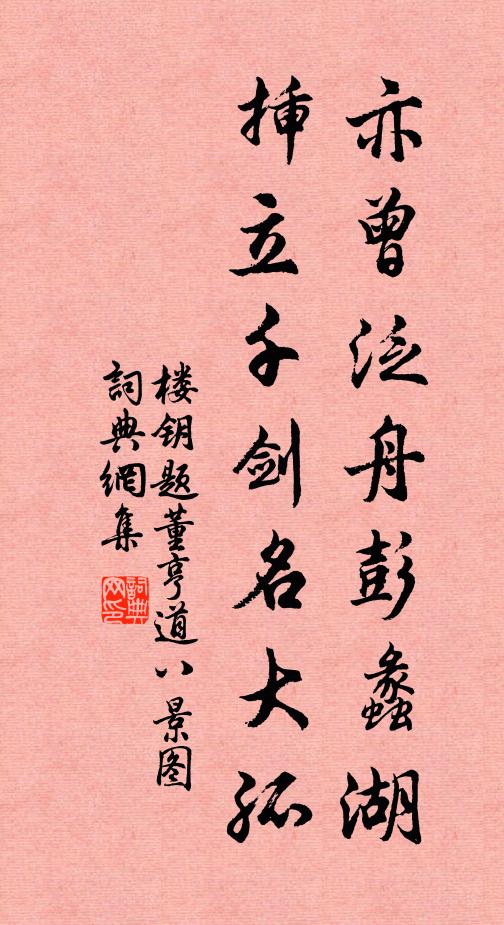 亦曾泛舟彭蠡湖
挿立千剑名大孤
楼钥题董亨道八景图
詞典網集
詞典网印